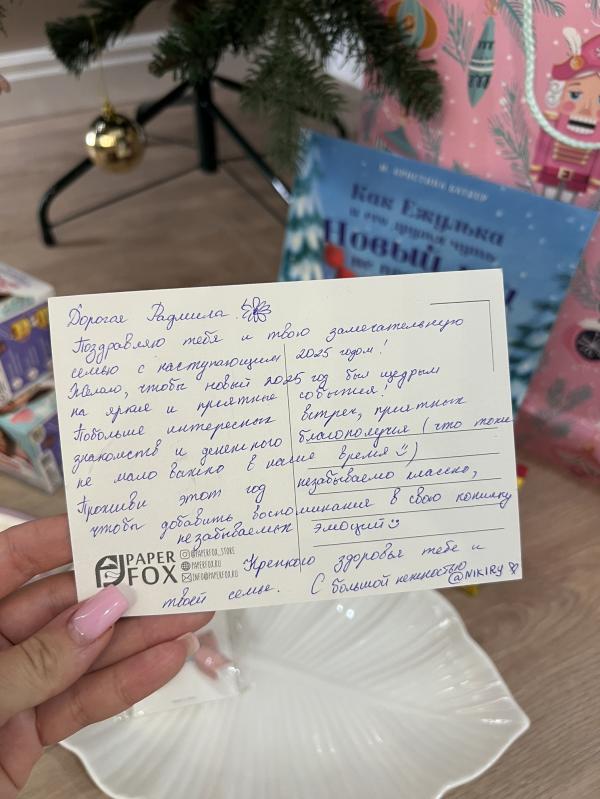 М КРИСТИНА КРЕТОВА
Как Ежулька
и его друзья чуть
Новый
не
Дорогая Радмила.
Поздравляю тебя и твою замечательную
семью с наступающим 2025 годом!
Желаю, чтобы новый 2025 год был щедрым
на яркие и приятные события.
Побольше интересных встреч, приятных
знакомств и денежного благополучия (что тоже
не мало важно в наше время)
Проживи этот год незабываемо классно,
чтобы добавить воспоминания в свою копилку
незабываемых эмоций
Крепкого здоровья тебе и
твоей семье. С большой нежностью
@NIKIRY
PAPER
FOX
@PAPERFOX_STORE
PAPERFOX.RU
INFO@PAPERFOX.RU